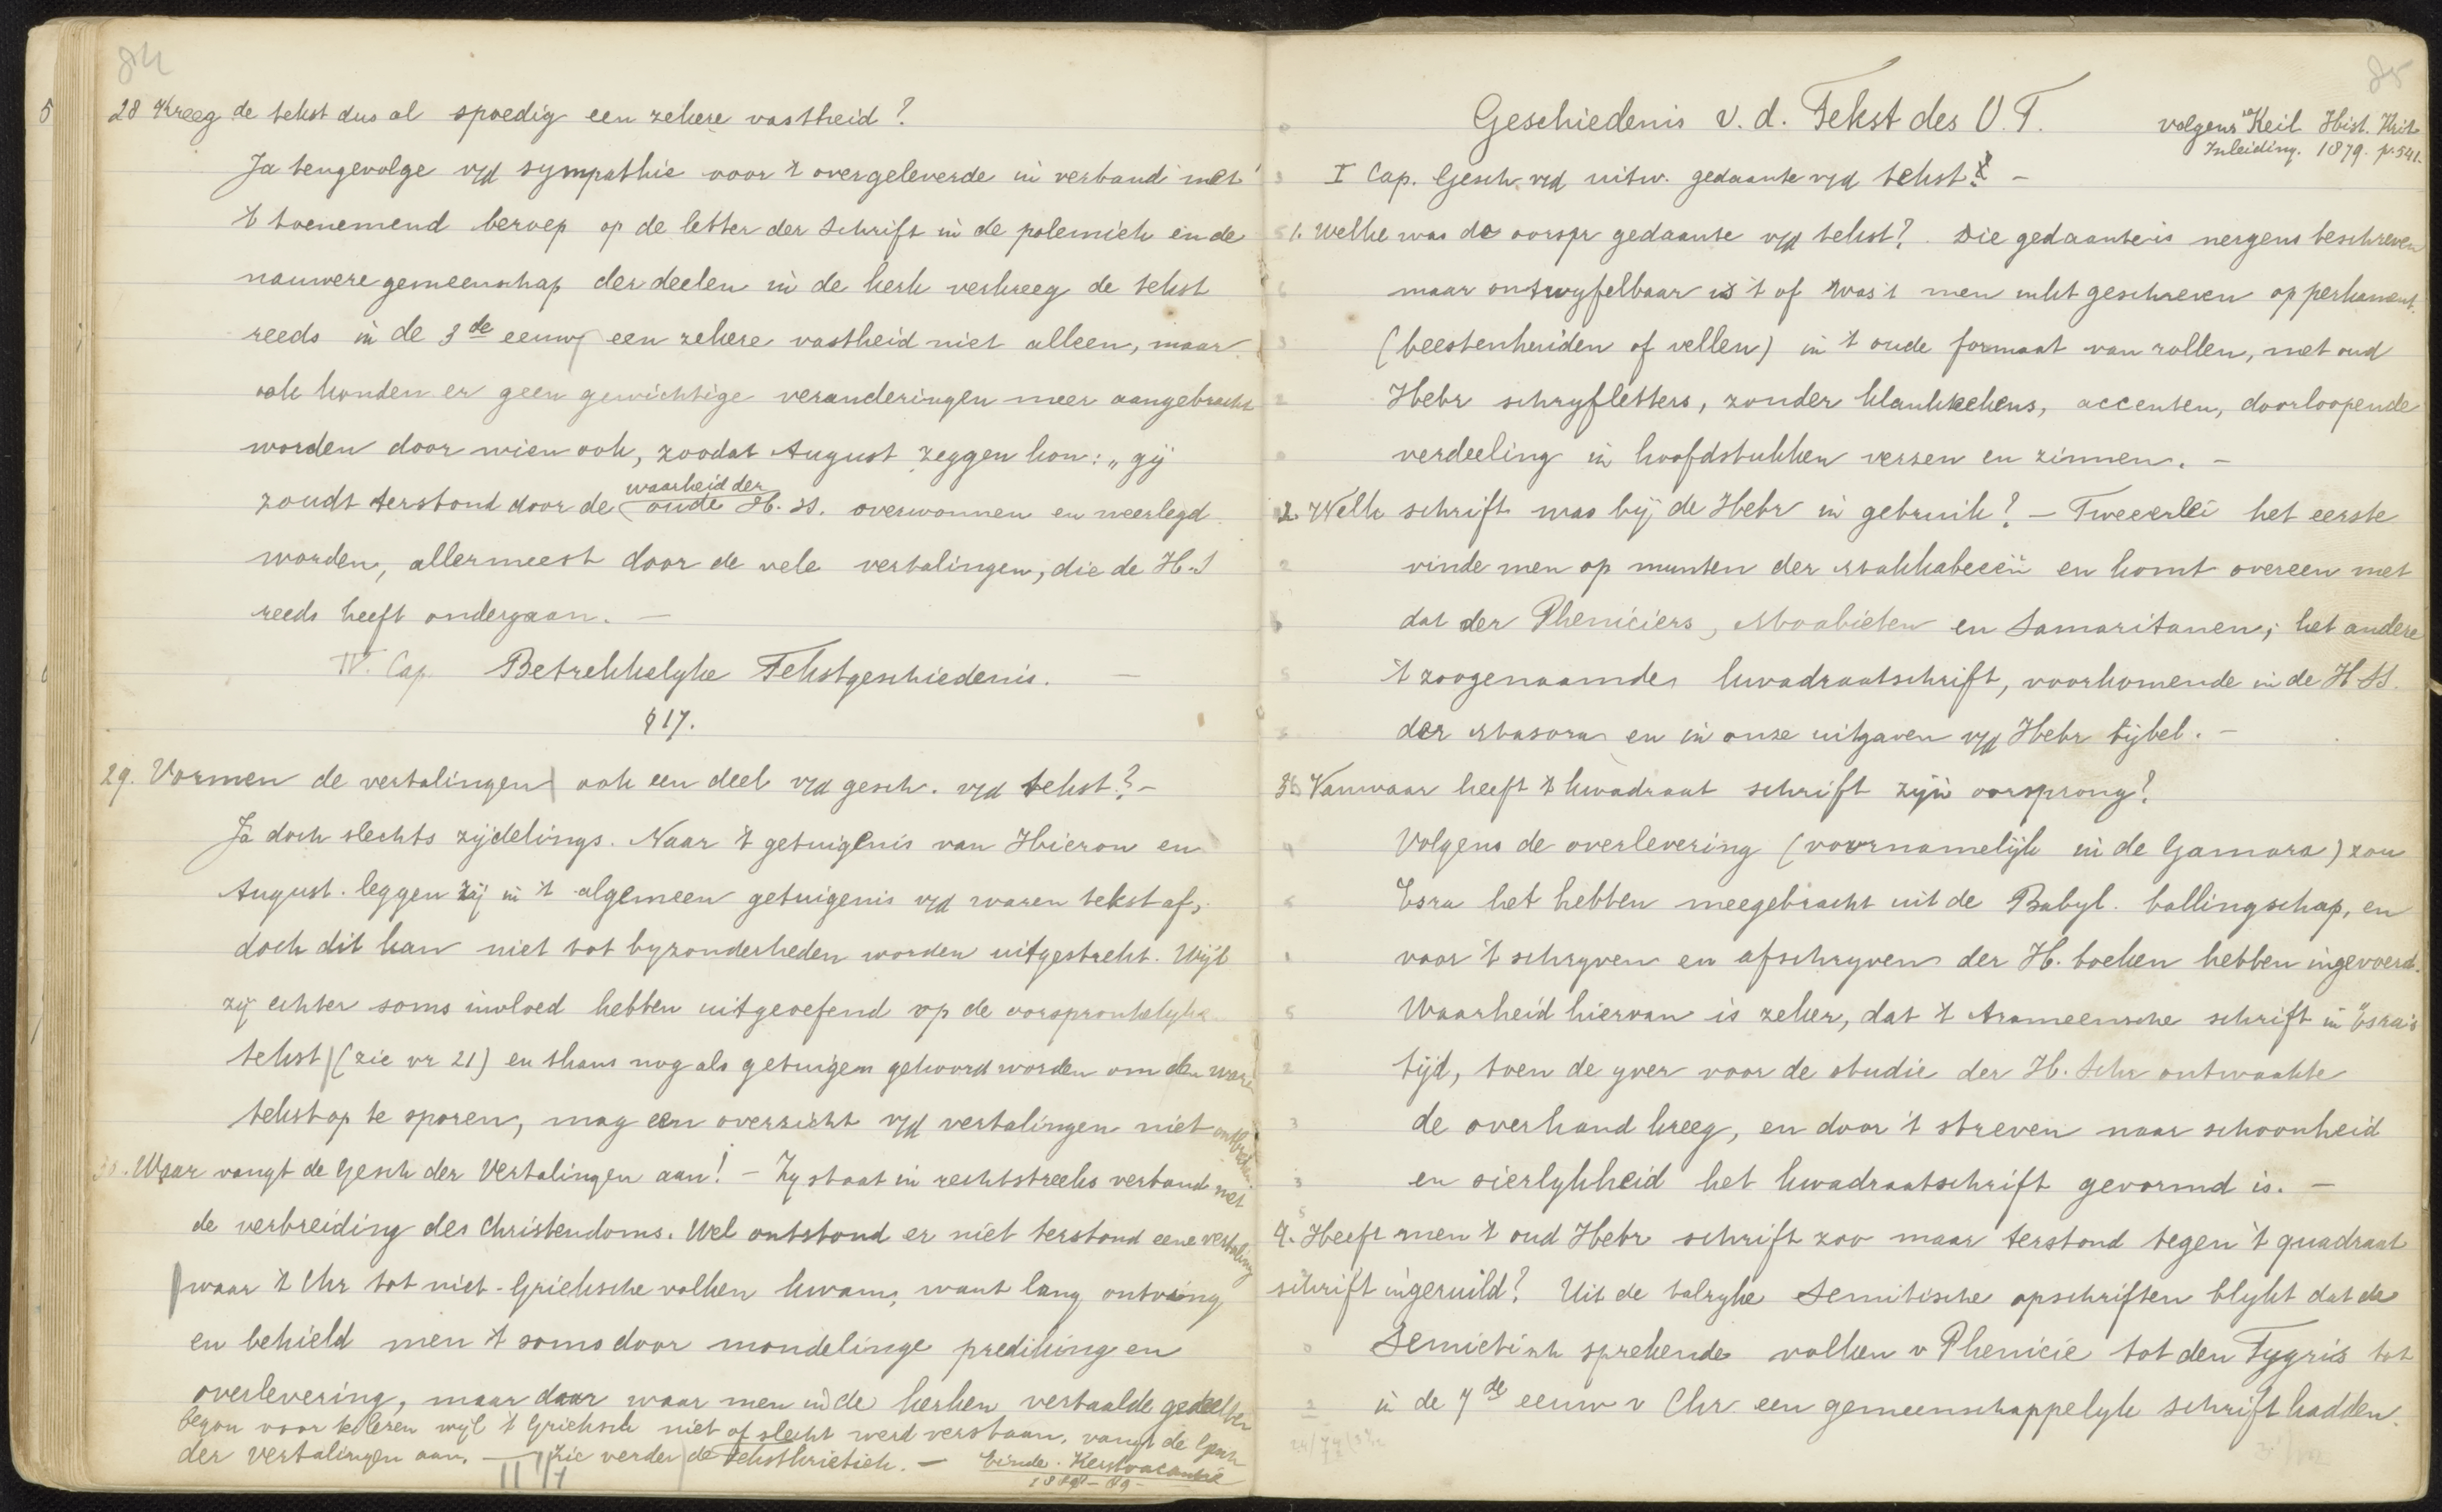 84
28 Kreeg de tekst dus al spoedig een zekere vastheid?
Ja tengevolge v/d sympathie voor 't overgeleverde in verband met
't toenemend beroep op de letter der Schrift in de polemiek en de
nauwere gemeenschap der deelen in de kerk verkreeg de tekst
reeds in de 3de eeuw een zekere vastheid niet alleen, maar
ook konden er geen gewichtige veranderingen meer aangebracht
worden door wien ook, zoodat August zeggen kon: „gij
zoudt terstond door de waarheid der oude H.SS. overwonnen en weerlegd
worden, allermeest door de vele vertalingen, die de H.S
reeds heeft ondergaan. —
IV. Cap. Betrekkelyke Tekstgeschiedenis. —
§ 17.
29. Vormen de vertalingen ook een deel v/d gesch. v/d tekst? –
Ja doch slechts zijdelings. Naar 't getuigenis van Hieron en
August. leggen zij in 't algemeen getuigenis v/d waren tekst af,
doch dit kan niet tot byzonderheden worden uitgestrekt. Wijl
zij echter soms invloed hebben uitgeoefend op de oorspronkelyke
tekst (zie vr 21) en thans nog als getuigen gehoord worden om den ware
tekst op te sporen, mag een overzicht v/d vertalingen niet ontbreken
30. Waar vangt de Gesch der Vertalingen aan! – Zy staat in rechtstreeks verband met
de verbreiding des Christendoms. Wel ontstond er niet terstond eene vertaling
waar 't Chr tot niet-Grieksche volken kwam, want lang ontving
en behield men 't soms door mondelinge prediking en
overlevering, maar daar waar men in de kerken vertaalde gedeelten
begon voor te lezen wijl 't Grieksch niet of slecht werd verstaan, vangt de Gesch
der vertalingen aan. — zie verder de Tekstkritiek. — Einde. Kerstvacantie
1888–89–
85
Geschiedenis v. d. Tekst des O. T.
volgens Keil Hist. Krit.
Inleiding. 1879. p. 541.
I Cap. Gesch v/d uitw. gedaante v/d tekst. –
1. Welke was de oorspr gedaante v/d tekst? . Die gedaante is nergens beschreven
maar ontwyfelbaar is 't of was 't men inkt geschreven op perkament.
(beestenhuiden of vellen) in 't oude formaat van rollen, met oud
Hebr schryfletters, zonder klankteekens, accenten, doorloopende
verdeeling in hoofdstukken verzen en zinnen. –
2. Welk schrift was bij de Hebr in gebruik? – Tweeerlei het eerste
vinde men op munten der Makkabeeën en komt overeen met
dat der Pheniciers, Moabieten en Samaritanen; het andere
't zoogenaamde kwadraatschrift, voorkomende in de H.SS.
der Masora en in onze uitgaven v/d Hebr bijbel. –
3. Vanwaar heeft 't kwadraat schrift zijn oorsprong?
Volgens de overlevering (voornamelijk in de Gamara) zou
Esra het hebben meegebracht uit de Babyl. ballingschap, en
voor 't schryven en afschryven der H. boeken hebben ingevoerd.
Waarheid hiervan is zeker, dat 't Arameensche schrift in Esra's
tijd, toen de yver voor de studie der H. Schr ontwaakte
de overhand kreeg, en door 't streven naar schoonheid
en sierlykheid het kwadraatschrift gevormd is. –
4. Heeft men 't oud Hebr schrift zoo maar terstond tegen 't quadraat
schrift ingeruild? Uit de talryke Semitische opschriften blykt dat de
Semietisch sprekende volken v Phenicie tot den Tygris tot
in de 7de eeuw v Chr een gemeenschappelyk schrift hadden.